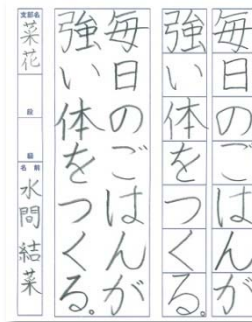 毎日のごはんが
強い体をつくる。
毎日のごはんが
強い体をつくる。
支部名 菜花
段
級
名前 水間結菜